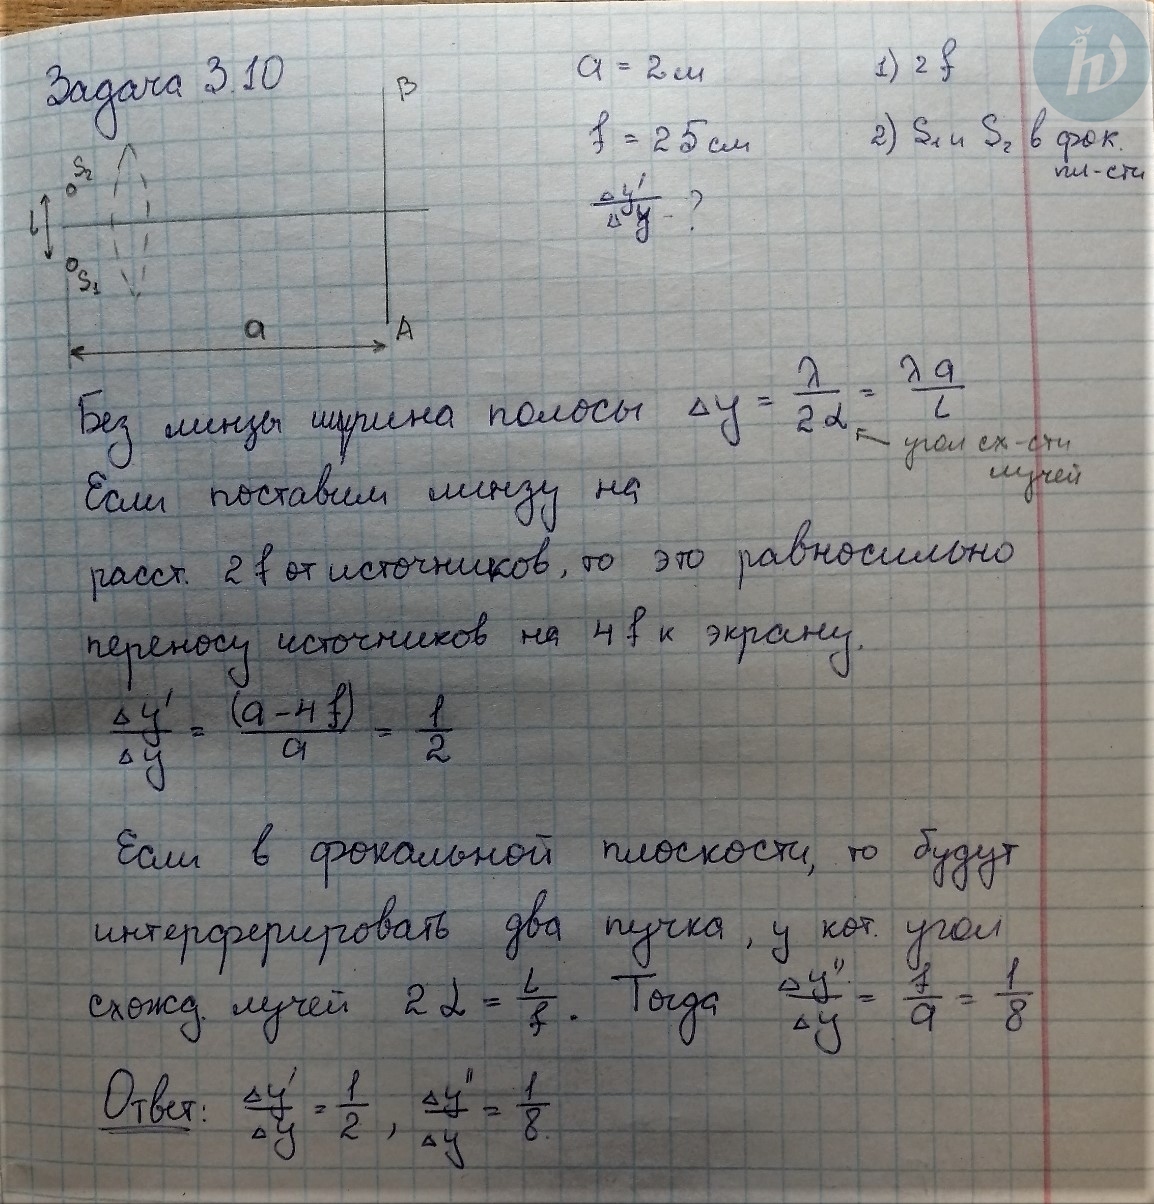 Задача 3.10
a = 2 м
1) 2 f
f = 25 см
2) S₁ и S₂ в фок. пл-сти
Δy'/Δy - ?
B
S₂
L
S₁
a
A
Без линзы ширина полосы Δy = λ/2α = λa/L
угол сх-сти лучей
Если поставим линзу на
расст. 2 f от источников, то это равносильно
переносу источников на 4 f к экрану.
Δy'/Δy = (a - 4 f)/a = 1/2
Если в фокальной плоскости, то будут
интерферировать два пучка, у кот. угол
схожд. лучей 2α = L/f. Тогда Δy''/Δy = f/a = 1/8
Ответ: Δy'/Δy = 1/2, Δy''/Δy = 1/8.